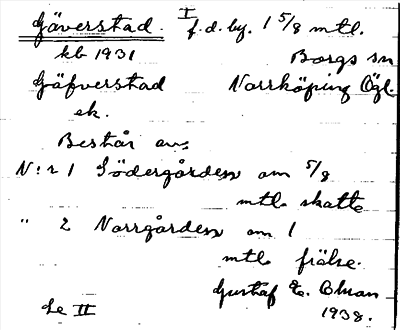 Gäverstad. I f.d. by. 1 5/8 mtl.
kb 1931 Borgs sn
Gäfverstad Norrköping Ögl.
ek.
Består av:
N:r 1 Södergården om 5/8
mtl. skatte
" 2 Norrgården om 1
mtl. frälse.
Gustaf E. Ohman
Se II 1938.